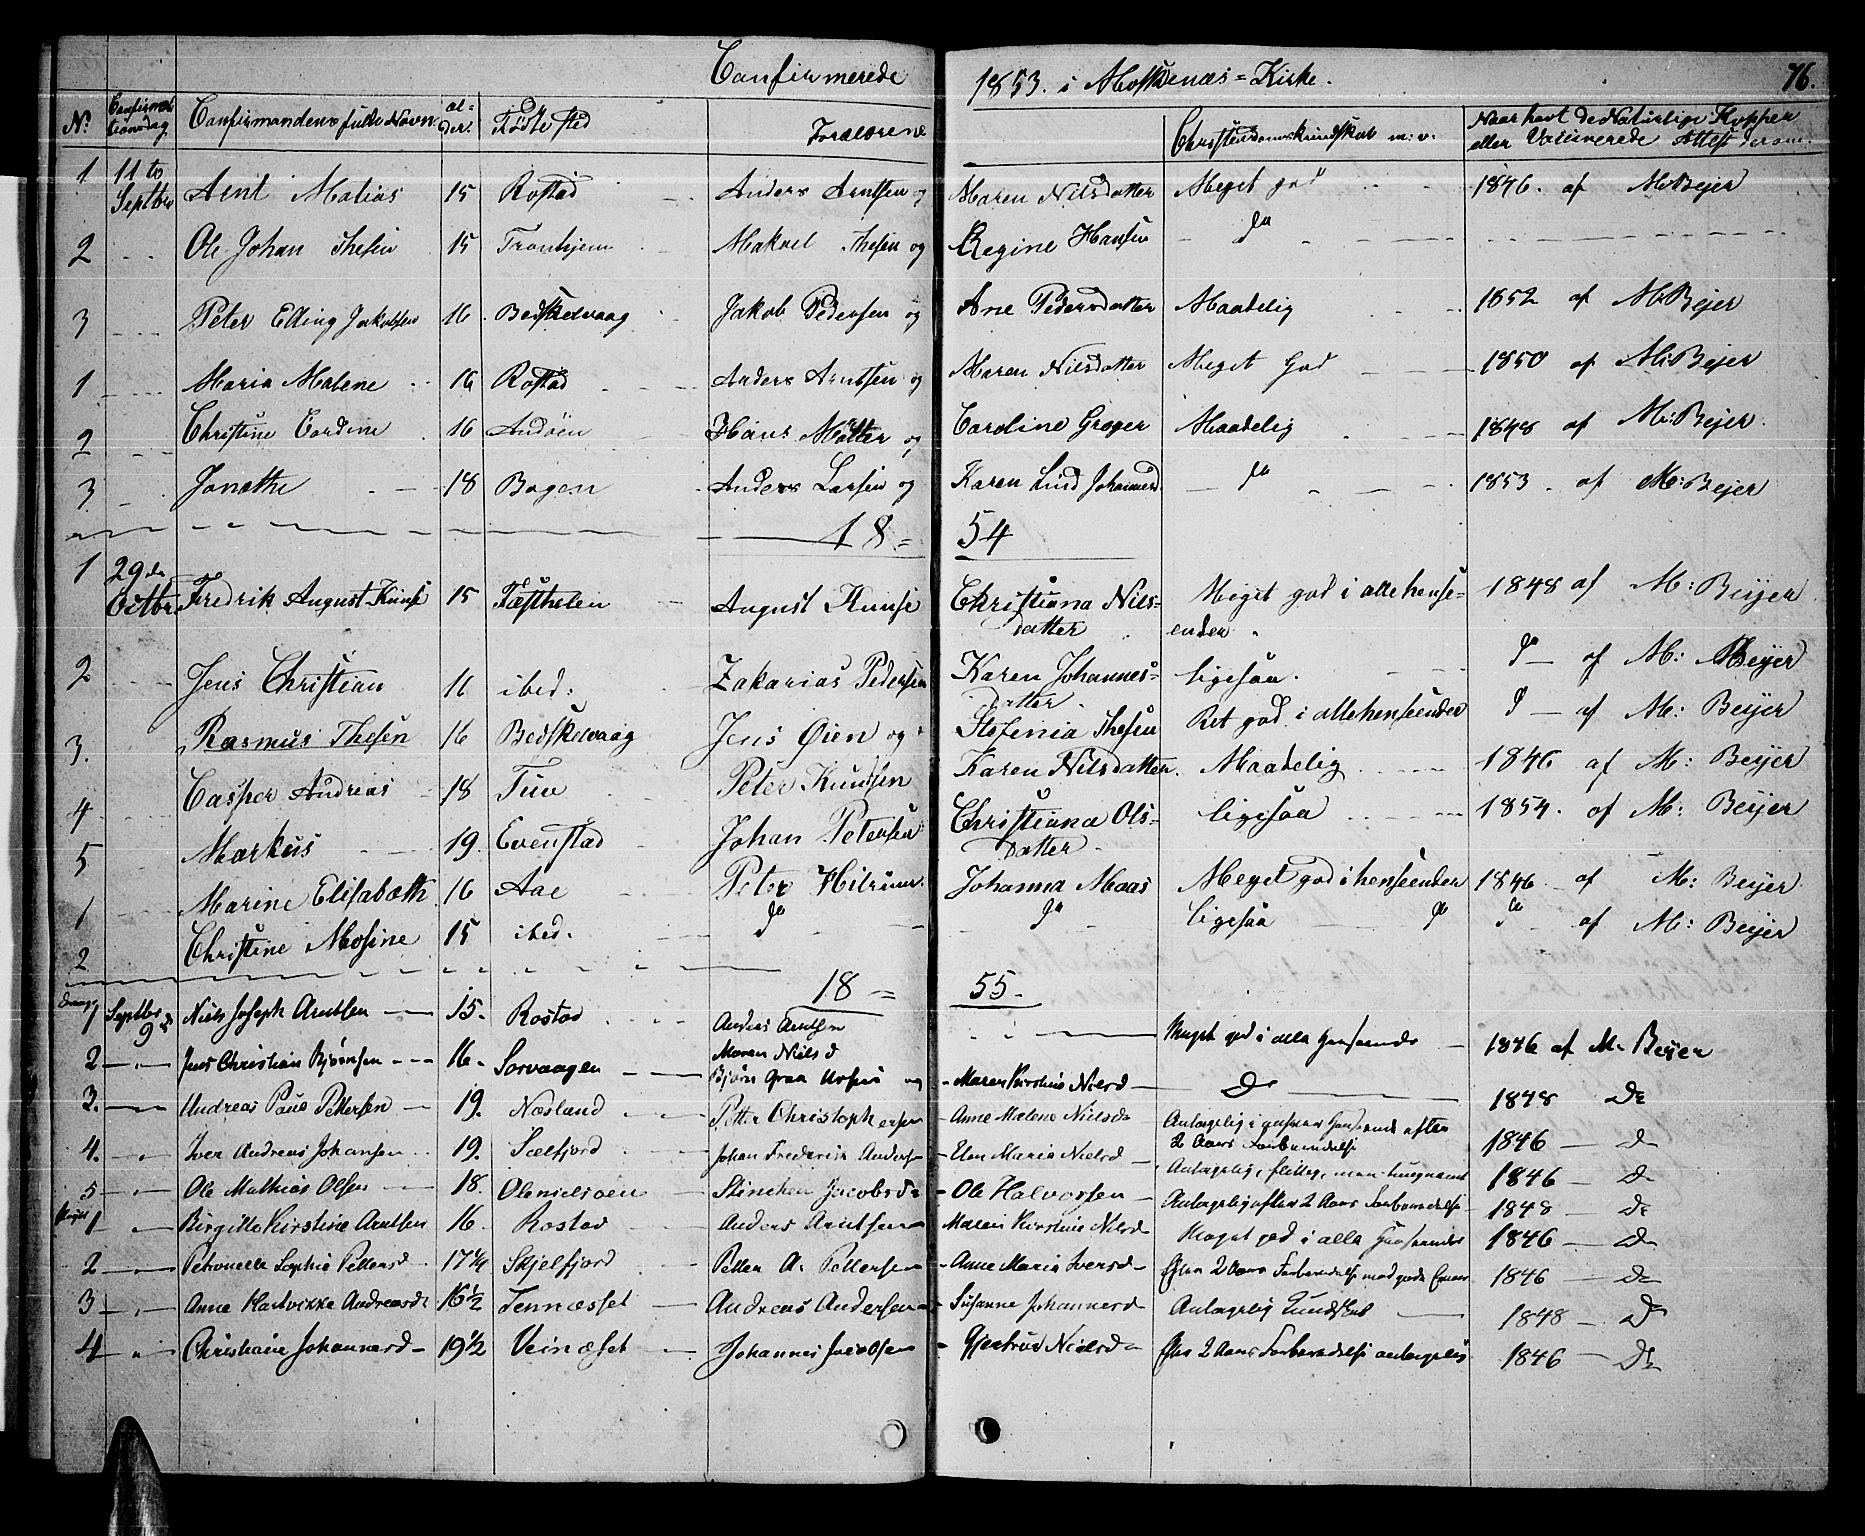 Confirmerede 1853. i Moskenæs=Kirke. 76.
N: Confirmationsdag Confirmandens fulde Navn Alder. Fødested Forældrene Christendomskundskab m: v: Naar havt de Naturlige Kopper
eller Vaccinerede Attest derom.
1 11te Septbr Arnt Matias 15 Rostad Anders Arntsen og Maren Nilsdatter Meget god 1846. af M: Beijer
2 Ole Johan Thesen 15 Tronhjem Thesen og Regine Hansen do
3 Peter Elling Jakobsen 16 Bedskelvaag Jakob Pedersen og Ane Pedersdatter Maadelig 1852 af M: Beijer
1 Maria Malene 16 Rostad Anders Arntsen og Maren Nilsdatter Meget God 1850 af M: Beijer
2 Christine 16 Andøen Hans og Caroline Groger Maadelig 1848 af M: Beijer.
3 Janethe 18 Bogen Anders Larsen og Karen Lind do 1853. af M: Beijer
18=54
1 29de Octbr. Fredrik August Kunse 15 August Kunse Christiana Nils= Meget god i alle hense= 1848 af M: Beijer
datter ender.
2 Jens Christian 16 ibed: Zakarias Pedersen Karen Johannes= ligesaa. do af M: Beijer
datter.
3. Rasmus Thesen 16 Bedskelvaag Jens Øien og Stefenia Thesen Ret god i alle henseender do af M: Beijer
4 Casper Andreas 18 Tuv Peter Knudsen Karen Nilsdatter. Maadelig 1846 af M: Beijer
5 Markus 19. Evenstad Johan Petersen Christiana Ols= ligesaa 1854. af M: Beijer
datter.
1 Marine Elisabeth 16 Aae Peter Johanna Maas Meget god i henseender 1846 af M: Beijer
2 Christine Mosine 15 ibed. do do ligesaa do do af M: Beijer
18=55.
Drenge 1 Septbr 9de Niels Joseph Arntsen 15. Rostad Anders Arntsen Meget god i alle 1846 af M. Beijer
Maren Nielsd
2 Jens Christian Bjørnsen 16. Sorvaagen Bjørn og Maren Kirstine Nielsd Do
3. Andreas Paul Pettersen 19. Næsland Petter Christophersen Anne Malene Nielsd 1848 Do
4. Iver Andreas Johansen 19. Sælfjord Johan Frederik Andersen Maria Nielsd 2 Aars Forberedelse 1846 Do
5 Ole Mathias Olsen 18. Olenielsøen Jacobsd Ole Halvorsen Antagelig, flittig, men 1846 Do
Piger 1 Birgitte Kirstine Arntsen 16. Rostad Anders Arntsen Maren Kirstine Nielsd Antagelig efter 2 Aars Forberedelse 1848 Do
2 Petronelle Sophie Pettersd 17 1/4 Skjelfjord Petter A. Pettersen Anne Maria Iversd Meget god i alle 1846 Do
3 Anne Hartvikke Andreasd 16 1/2 Tennæsset Andreas Andersen Susanne Johannesd Efter 2 Aars Forberedelse med gode Evner 1846 Do
4 Christiane Johannesd 19 1/2 Veinæset Johannes Jacobsen Gjertrud Nielsd Antagelig Kundskab 1848 Do
Efter 2 Aars Forberedelse antagelig 1846 Do